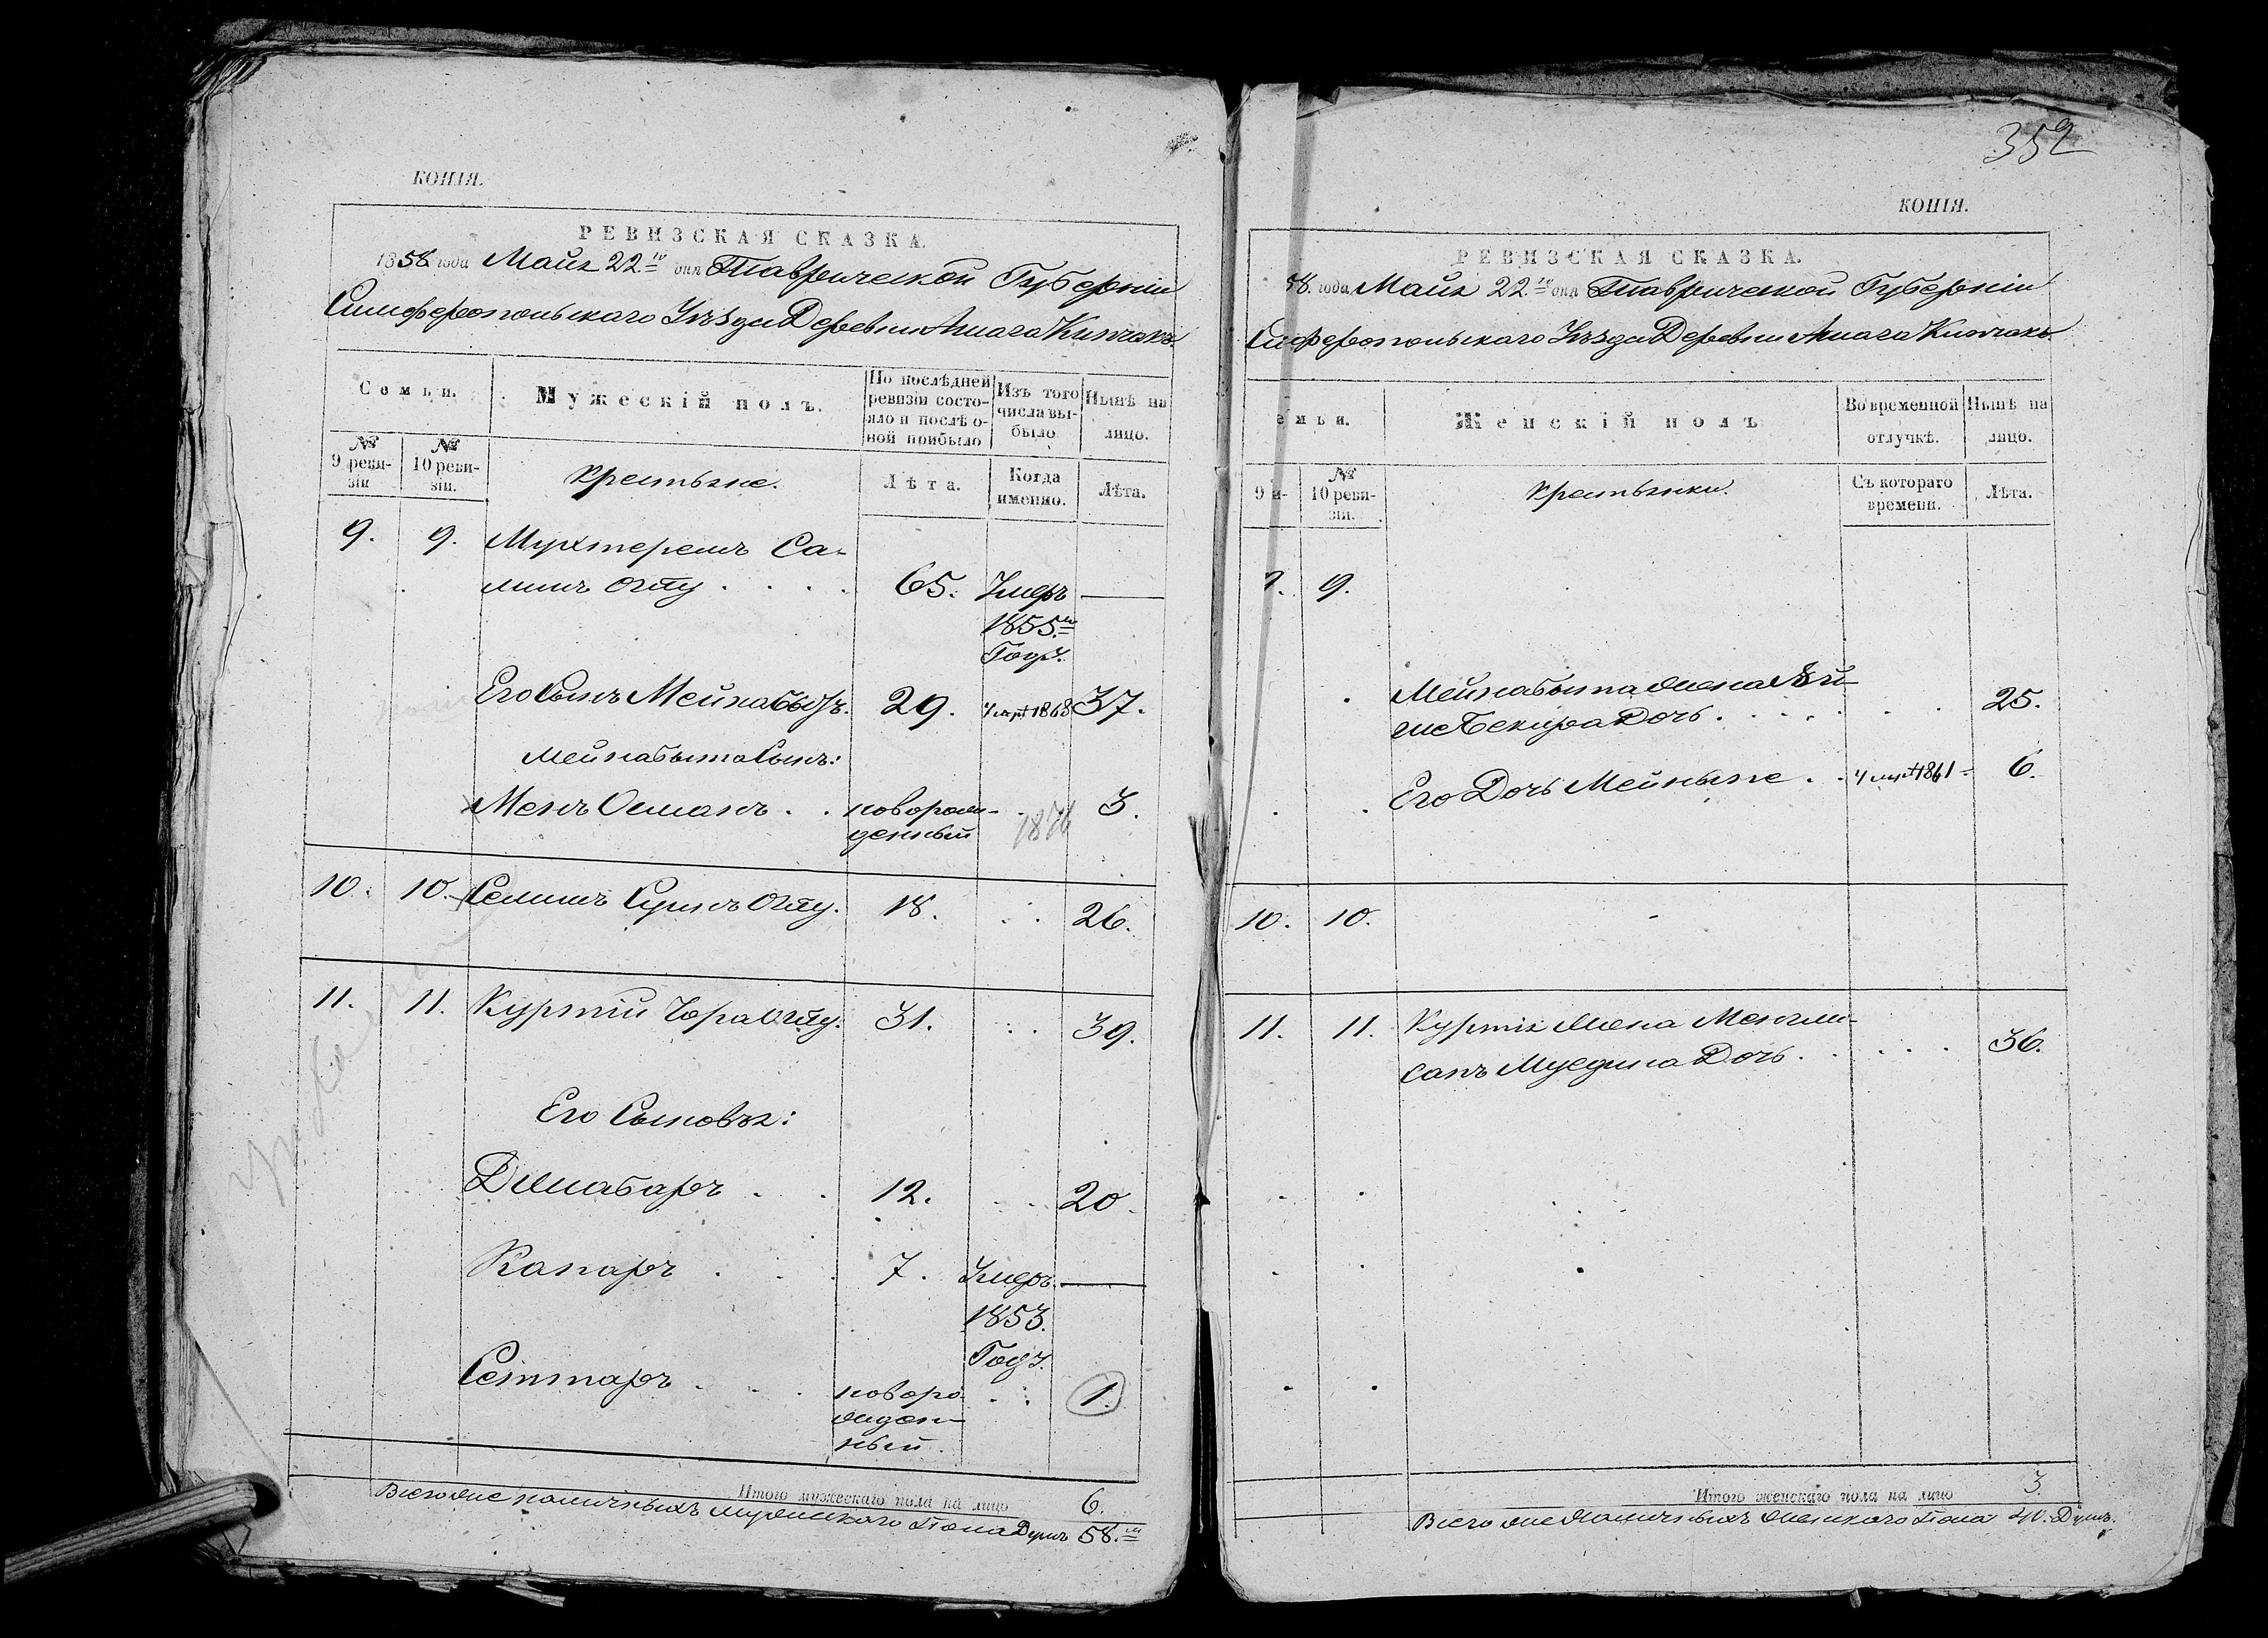 КОПІЯ.
РЕВИЗСКАЯ СКАЗКА.
1858 года Маія 22го дня Таврической Губерніи
Симферопольскаго Уѣзда Деревни Ашага Кипчакъ
Семьи. Мужескій полъ. По послѣдней ревизіи состояло и послѣ оной прибыло Изъ того числа выбыло Нынѣ на лицо.
№ 9 ревизіи № 10 ревизіи. Крестьяне. Лѣта. Когда именно. Лѣта.
9. 9. Мухтеремъ Са-
лимъ Оглу . . . . 65. Умеръ —
1855го
Году.
Его Сынъ Мейнабытъ. 29. умръ 1868 37.
Мейнабыта Сынъ:
Менъ Османъ . . новорож- 3.
денный 1876
10. 10. Селимъ Суинъ Оглу. 18. . . 26.
11. 11. Куртій Чора Оглу. 31. . . 39.
Его Сыновья:
Джабаръ . . 12. . . 20.
Капаръ . . . 7. Умеръ. —
1853.
Году.
Сеттаръ . . . новоро- . . 1.
жден-
ный.
Итого мужескаго пола на лицо 6.
Всего же наличныхъ мужескаго Пола Душъ 58.
352
КОПІЯ.
РЕВИЗСКАЯ СКАЗКА.
58. года Маія 22го дня Таврической Губерніи
Симферопольскаго Уѣзда Деревни Ашага Кипчакъ.
емьи. Женскій полъ Во временной отлучкѣ. Нынѣ на лицо.
9 и- № 10 ревизіи. Крестьянки. Съ котораго времени. Лѣта.
9. 9.
Мейнабыта жена
Бекира Дочь . . . . 25.
Его Дочь . . умр 1861 6.
10. 10. -
11. 11. Куртія Жена Менгли-
санъ Муедина Дочь . . . . 36.
Итого женскаго пола на лицо 3.
Всего же Наличныхъ Женскаго Пола 40. Душъ.